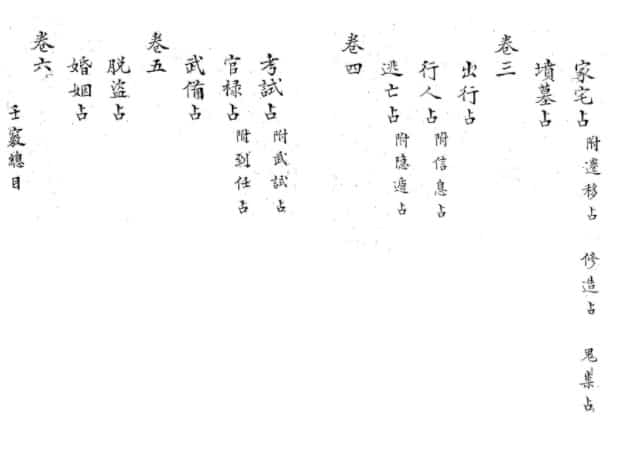 家宅占 附遷移占 修造占
墳墓占
卷三
出行占
行人占 附信息占
逃亡占 附隱遁占
卷四
考試占 附武試占
官禄占 附到任占
卷五
武備占
脱盜占
婚姻占
卷六
壬竅總目